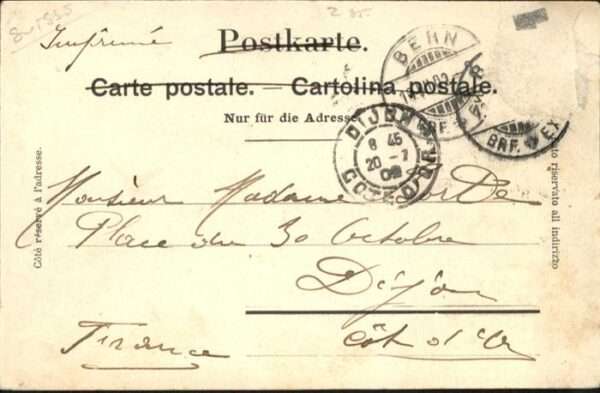 Imprimé
Postkarte.
Carte postale. — Cartolina postale.
Nur für die Adresse
BERN
BRF. EXP.
DIJON
8 45
20 - 7
02
COTE D'OR
Côté réservé à l'adresse.
lato riservato all indirizzo
Monsieur Madame
Place du 30 Octobre
Dijon
Côt d'Or
France